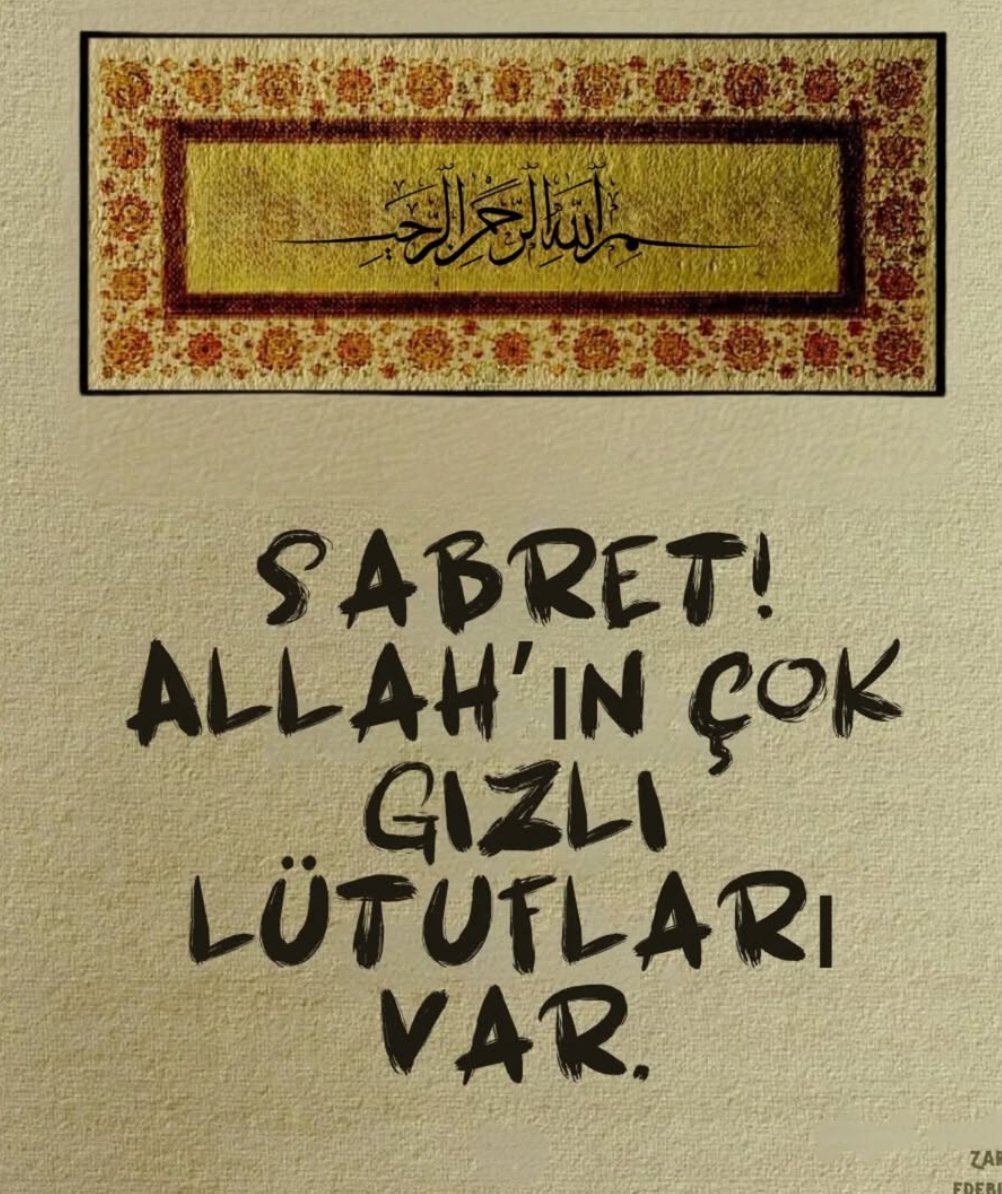 بسم الله الرحمن الرحيم
SABRET!
ALLAH'IN ÇOK
GIZLI
LÜTUFLARI
VAR.